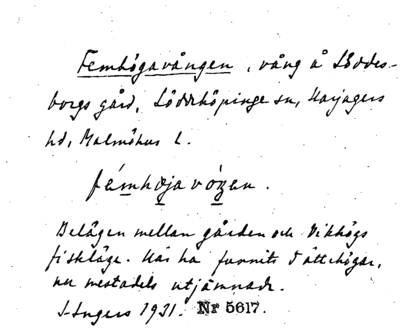 Femhögavången, vång å Löddes-
borgs gård, Löddeköpinge sn, Harjagers
hd, Malmöhus l.
fémhøja vóŋen.
Belägen mellan gården och Vikhögs
fiskläge. Här ha funnits 5 ättehögar,
nu mestadels utjämnade.
Ingers 1931. Nr 5617.